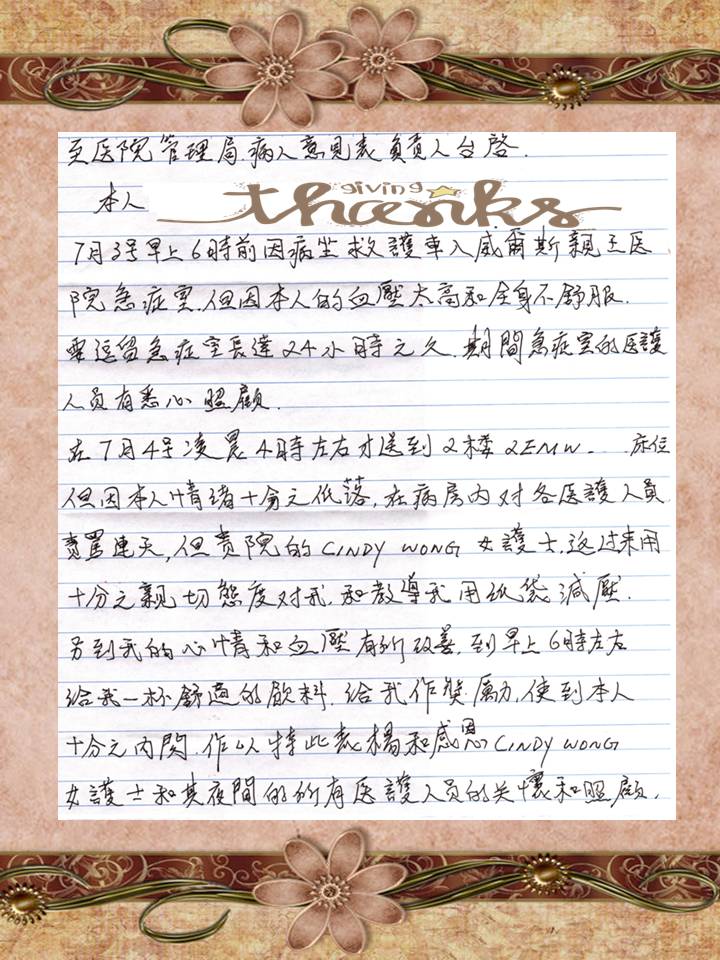 至医院管理局病人意見表負責人台啓.
本人
giving
thanks
7月3号早上6時前因病坐救護車入威爾斯親王医
院急症室.但因本人的血壓太高和全身不舒服.
要逗留急症室長達24小時之久.期間急症室的医護
人员有悉心照顧.
在7月4号凌晨4時左右才送到2楼2EMW... 床位
但因本人情緒十分之低落,在病房内对各医護人員
責罵連天,但貴院的CINDY WONG女護士,返过来用
十分之親切態度对我,和教導我用纸袋減壓.
另到我的心情和血壓有所改善,到早上6時左右
给我一杯舒適的飲料.给我作獎励,使到本人
十分之内関.作以特此表揚和感恩CINDY WONG
女護士和其夜間的所有医護人员的关懷和照顧.